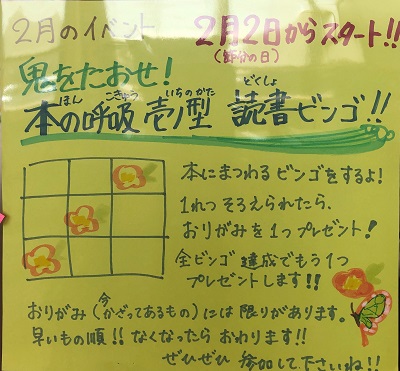 2月のイベント
2月2日からスタート!!
(節分の日)
鬼をたおせ!
本の呼吸 壱ノ型 読書ビンゴ!!
ほん こきゅう いちのかた どくしょ
本にまつわるビンゴをするよ!
1れつそろえられたら、
おりがみを1つプレゼント!
全ビンゴ達成でもう1つ
プレゼントします!!
おりがみ(今かざってあるもの)には限りがあります。
早いもの順!!なくなったらおわります!!
ぜひぜひ参加して下さいね!!